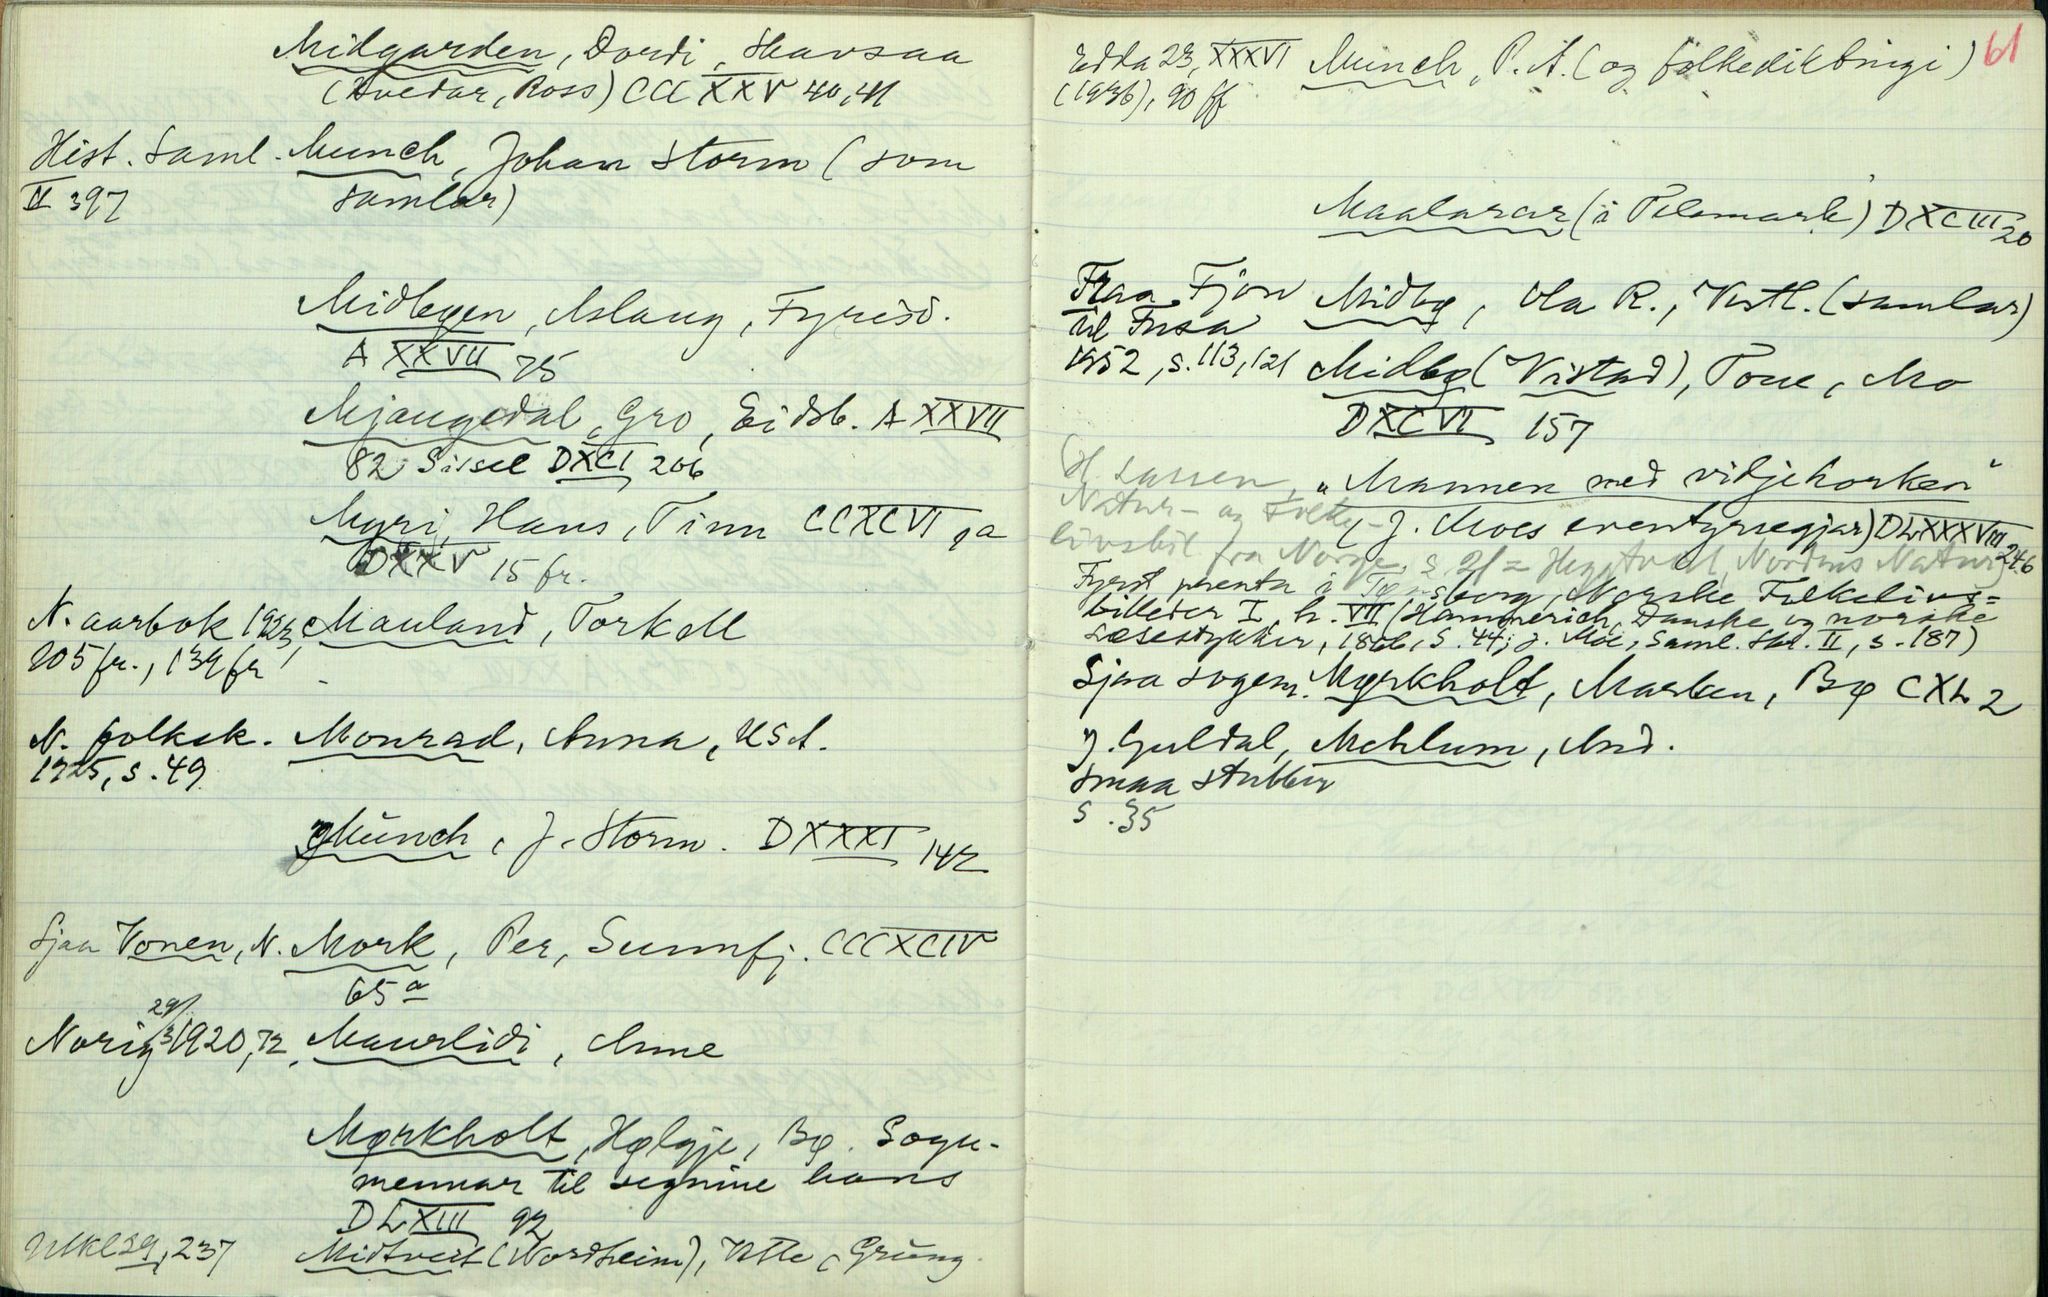 Midgarden, Dordi, Skavsaa
(Svedar, Ross) CCCXXXV 40, 41
Hist. Saml. Munch, Johan Storm (som
II 397 samlar)
Midbøen, Aslaug, Fyrisd.
A XXVII 75
Mjaugedal, Gro, Eidsb. A XXVII
82 Sissel DXCI 206
Myri, Hans, Tinn CCXCVI 9a
DXXV 15 fr.
N. aarbok 1923, Mauland, Torkell
205 fr., 139 fr
N. folkek. Monrad, Anna, USA.
1925, s. 49.
Münch, J. Storm. DXXXI 142
Sjaa Vonen, N. Mork, Per, Sunnfj. CCCXCIV
65 a
29/3
Norig 1920, 72 Maurlidi, Anne
Mørkholt, Hølgje, Bø. Sogu-
mennar til segnine hans
DLXIII 92
Midtveit (Nordheim), Grung.
61
Edda 23, XXXVI Munch, P. A. (og folkediktingi)
(1936), 90 ff
Maalarar (i Telemark) DXCIII 20
Fraa Fjon Midbø, Ola R., Vestl. (samlar)
til Fusa
1952, s. 113, 121 Midbø (Vistad), Tone, Mo
DXCVI 157
H. Lassen, „Mannen med vidjekorken"
Natur- og Folke- (J. Moes eventyrsegjar) DLXXXVIII 246
livsbil. fra Norge, s. 21 = Nordens Natur
Fyrst prenta i Tønsberg, Norske Folkelivs=
billeder I, h. VII (Hammerich, Danske og norske
Læsestykker, 1866, s. 44; J. Moe, Saml. Skr. II, s. 187)
Sjaa sogem. Mørkholt, Marken, Bø CXL 2
J. Guldal, Mehlum, And.
Smaa stubber
s. 35